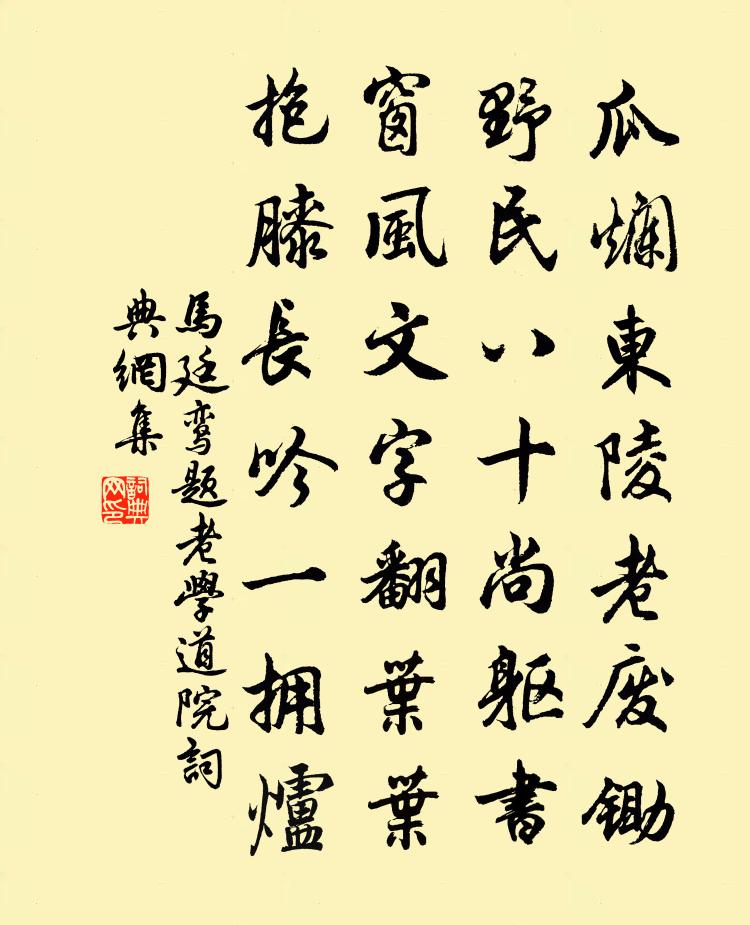 瓜爛東陵老废鋤
野民八十尚躯書
窗風文字翻葉葉
抱膝長吟一拥爐
馬廷鸾題老學道院詞
典網集
詞典
网印